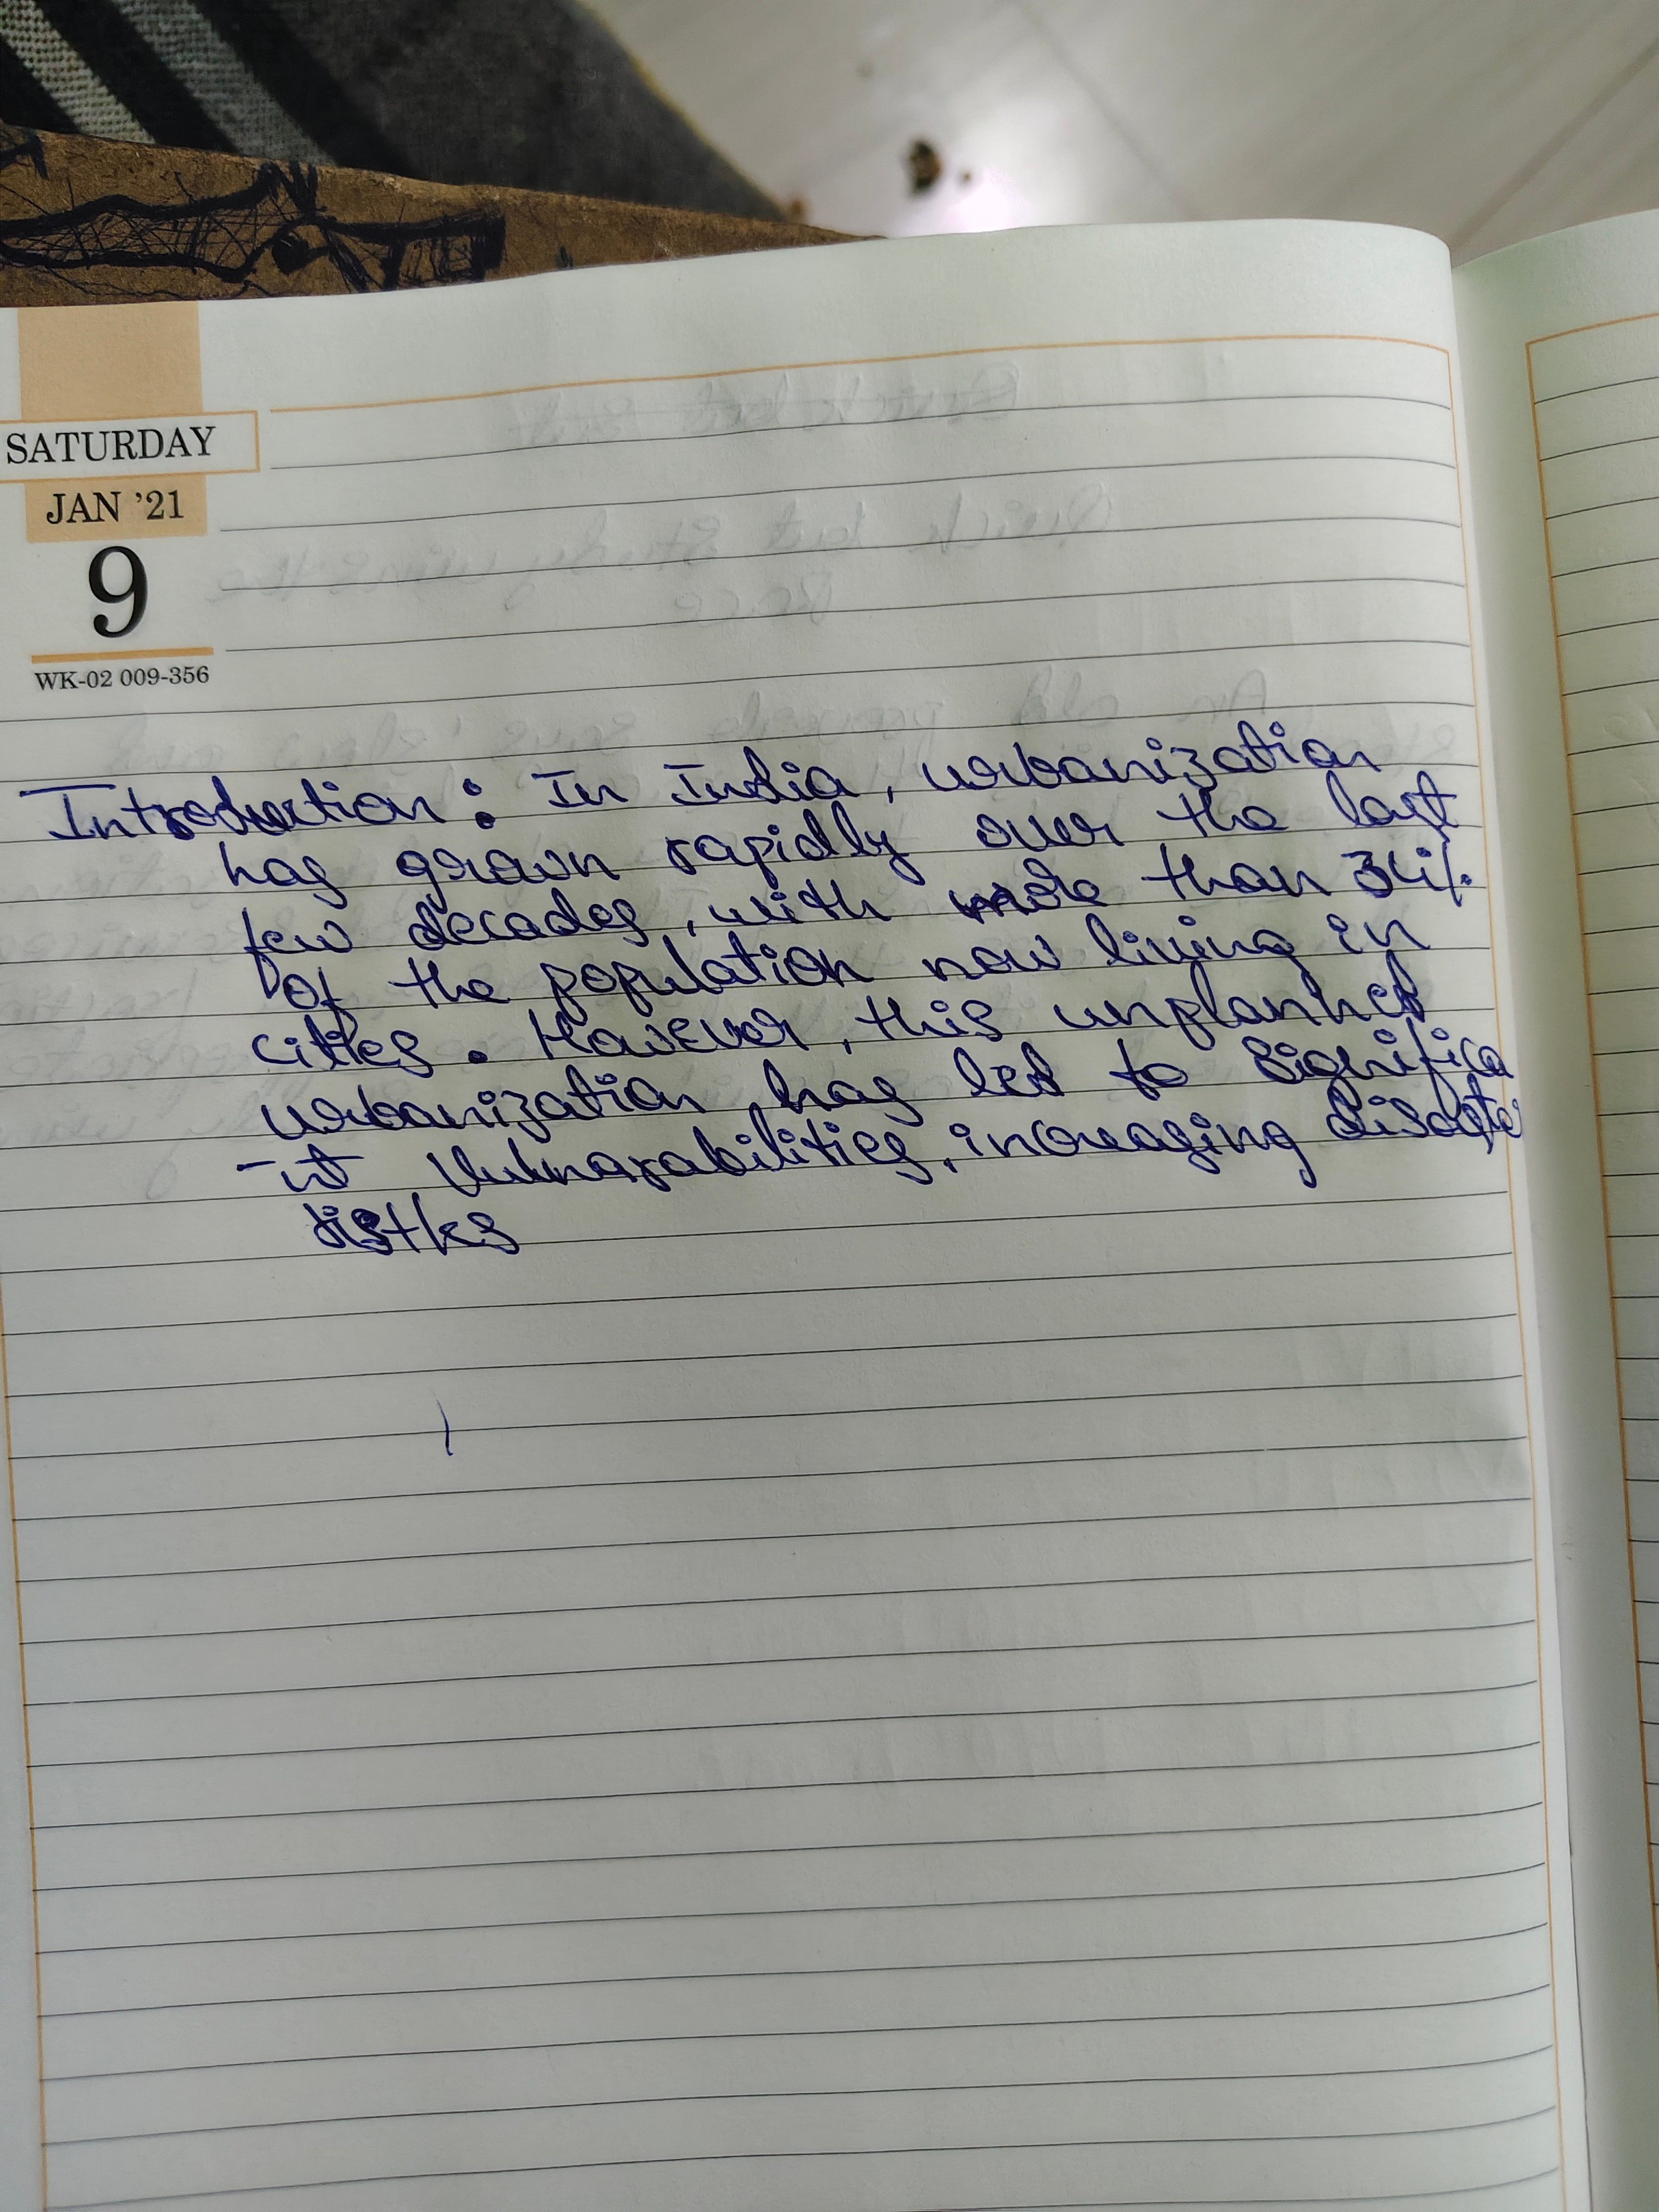 SATURDAY
JAN '21
9
WK-02 009-356
Introduction : In India, urbanization
has grown rapidly over the last
few decades, with more than 34%
of the population now living in
cities. However, this unplanned
urbanization has led to significa
-nt vulnarabilities, increasing disaste